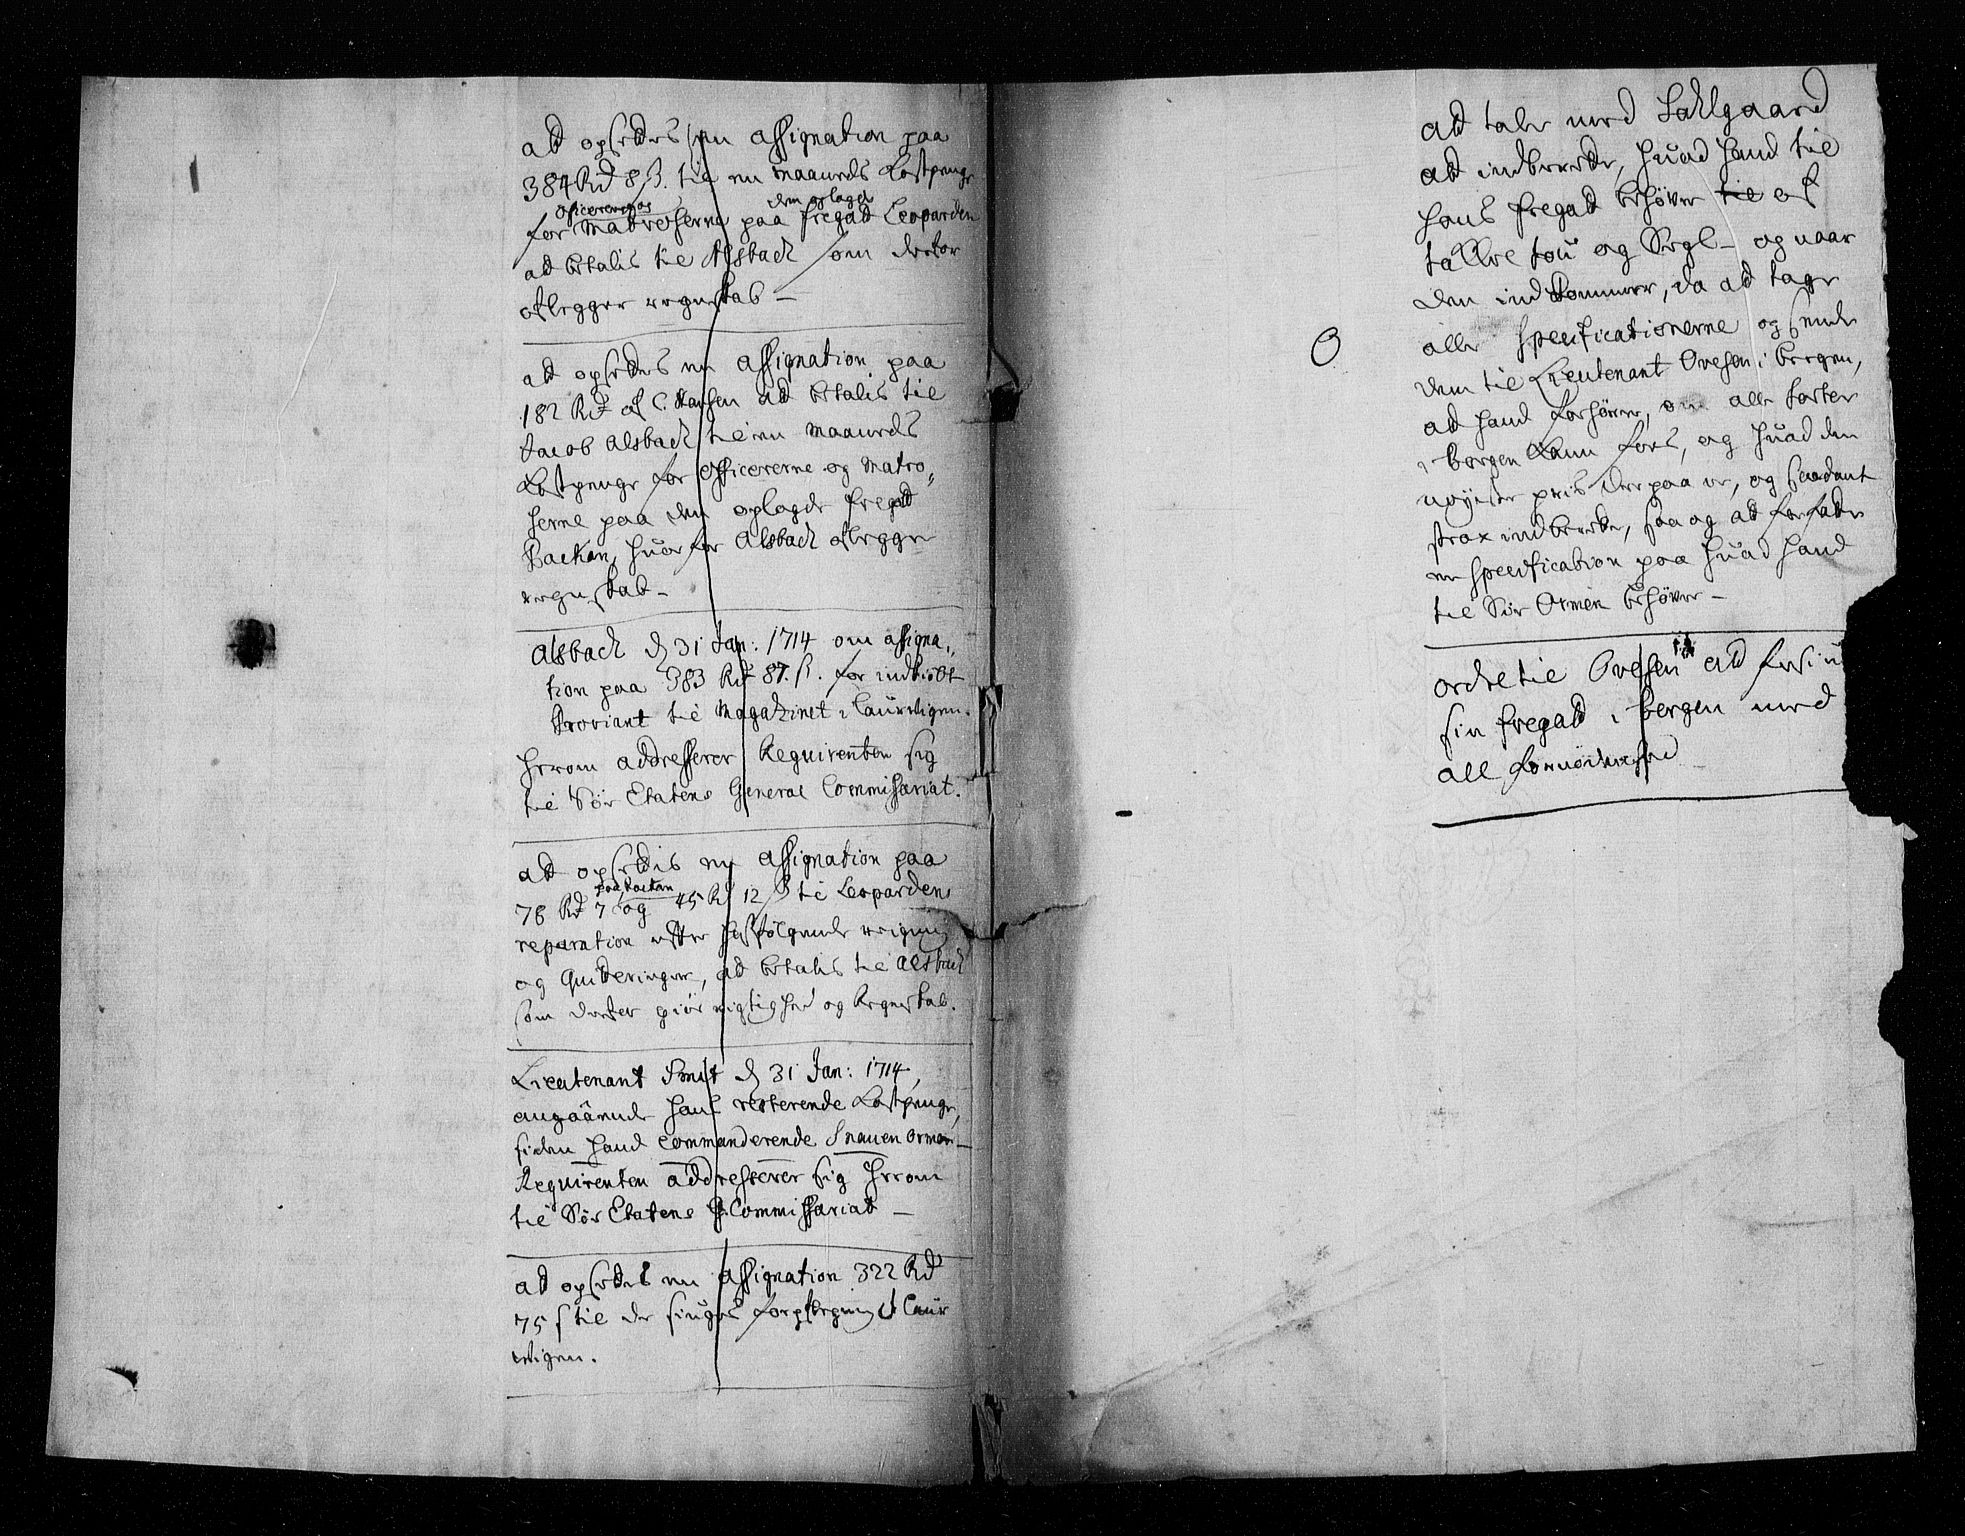 ad opsettes en assignation paa
384 Rd 8 β. til en maaneds Kostpenge
officererne og den oplagde
for Matroserne paa fregad Leoparden
ad betalis til Alsbach som derfor
aflegger regnskab —
ad opsettes en assignation paa
182 Rd af C. Hansen ad betalis til
Jacob Alsbach til en maaneds
Kostpenge for officererne og Matro„
serne paa den oplagde fregad
Packan, huorfor Alsbach aflegger
regnskab —
Alsbach d 31 Jan: 1714 om assigna„
tion paa 383 Rd 87. β. for indkiøbt
Proviant til Magazinet i Laurwigen.
Herom addresserer Requirenten sig
til Søe Etatens General Commissariat.
ad opsettis en assignation paa
paa Packan
78 Rd 7 og 45 Rd 12 β til Leopardens
reparation efter hosfølgende reigning
og Quitteringer, ad betalis til Alsbach
som derfor giør rigtighed og Regnskab.
Lieutenant Smit d 31 Jan: 1714,
angaaende hans resterende Kostpenge,
siden hand commanderende Snauen Ormen —
Requirenten addresserer sig herom
til Søe Etatens G. Commissariat —
ad opsettes en assignation 322 Rd
75 β til de siuges forpflegning i Laur
wigen.
ad tale med
ad indberette, huad hand til
hans fregad behøver til af
tou og Segl — og naar
den indkommer, da ad tage
alle Specificationerne og sende
dem til Lieutenant Ovesen i Bergen,
ad hand forhører, om alle sorter
i Bergen kann faaes, og huad den
nøyeste priis derpaa er, og saadant
strax indberette, saa og ad forfatte
en Specification paa huad hand
til Søe Ormen behøver —
ordre til Ovesen ad forsiune
sin fregad i Bergen med
all fornødenhed